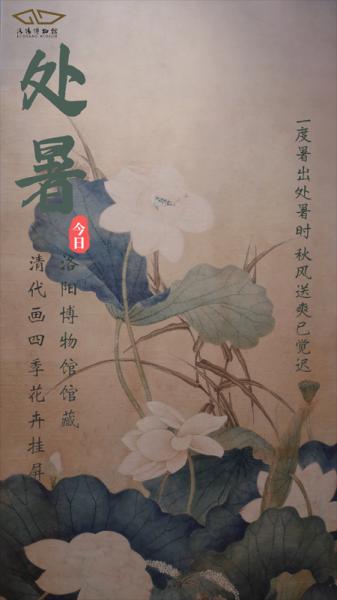 洛阳博物馆
LUOYANG MUSEUM
处暑
今日
洛阳博物馆馆藏
清代画四季花卉挂屏
一度暑出处暑时 秋风送爽已觉迟